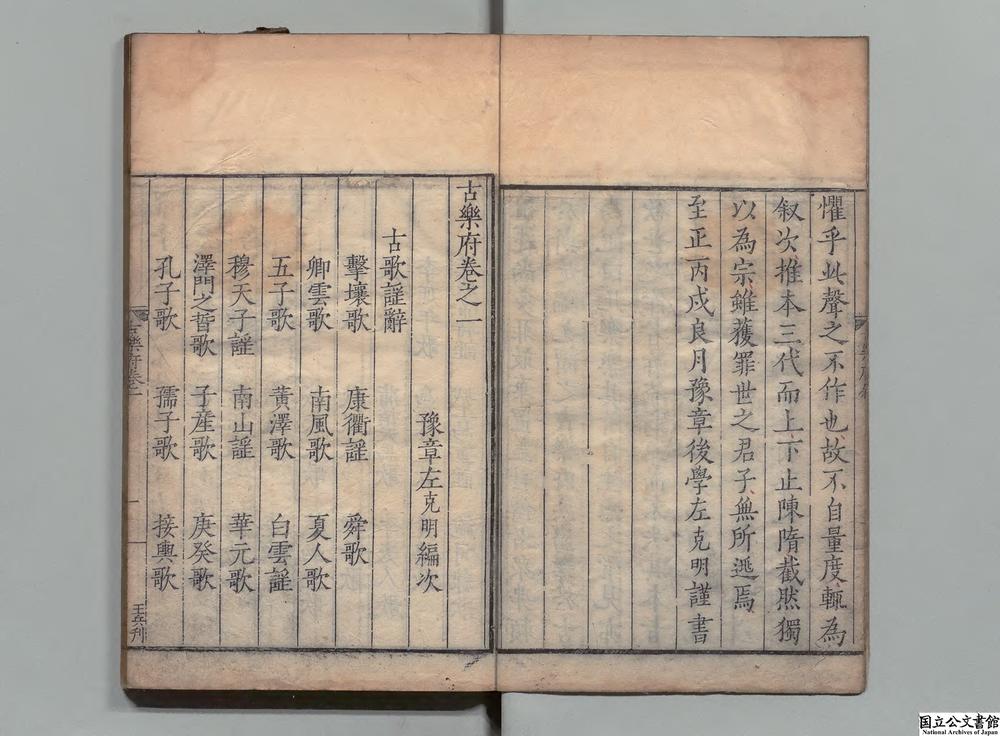 懼乎此聲之不作也故不自量度輒為
叙次推本三代而上下止陳隋截然獨
以為宗雖獲罪世之君子無所逃焉
至正丙戌良月豫章後學左克明謹書
古樂府卷之一
豫章左克明編次
古歌謡辭
擊壤歌 康衢謡 舜歌
卿雲歌 南風歌 夏人歌
五子歌 黃澤歌 白雲謡
穆天子謡 南山謡 華元歌
澤門之晳歌 子産歌 庚癸歌
孔子歌 孺子歌 接輿歌
古樂府卷一
一
王兵刋
国立公文書館
National Archives of Japan